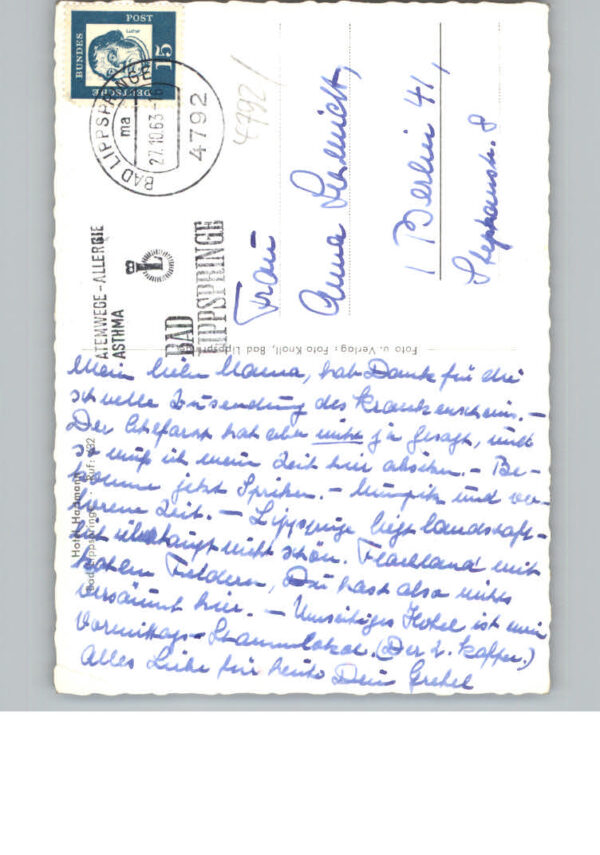 DEUTSCHE BUNDESPOST
15
BAD LIPPSPRINGE
ma
27.10.63
4792
4792/
ATEMWEGE-ALLERGIE
ASTHMA
BAD
LIPPSPRINGE
Frau
Anna
1 Berlin 41,
Stephanstr. 8
Foto u. Verlag: Foto Knoll, Bad Lippspri
Hotel Hartmann
Bad Lippspringe Ruf: 282
Mein liebe Mama, hab Dank für die
schnelle Zusendung des Krankenscheins. –
Der Chefarzt hat aber nicht ja gesagt, und
so muß ich meine Zeit hier absitzen. – Be-
komme jetzt Spritzen. – Mumpitz und ver-
lorene Zeit. – Lippspringe liegt landschaft-
lich überhaupt nicht schön. Flachland mit
kahlen Feldern, Du hast also nichts
versäumt hier. – Umseitiges Hotel ist mein
Vormittags-Stammlokal. (Der 2. Kaffee.)
Alles Liebe für heute Dein Gretel